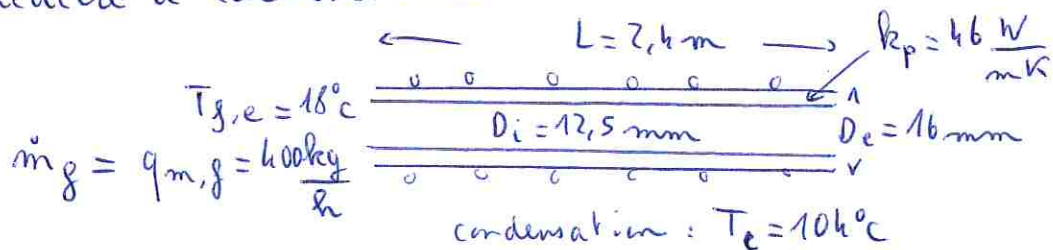 L = 2,4 m
k_p = 46 W/mK
T_f,e = 18°C
D_i = 12,5 mm
D_e = 16 mm
ṁ_f = q_m,f = 400 kg/h
condensation : T_e = 104°C